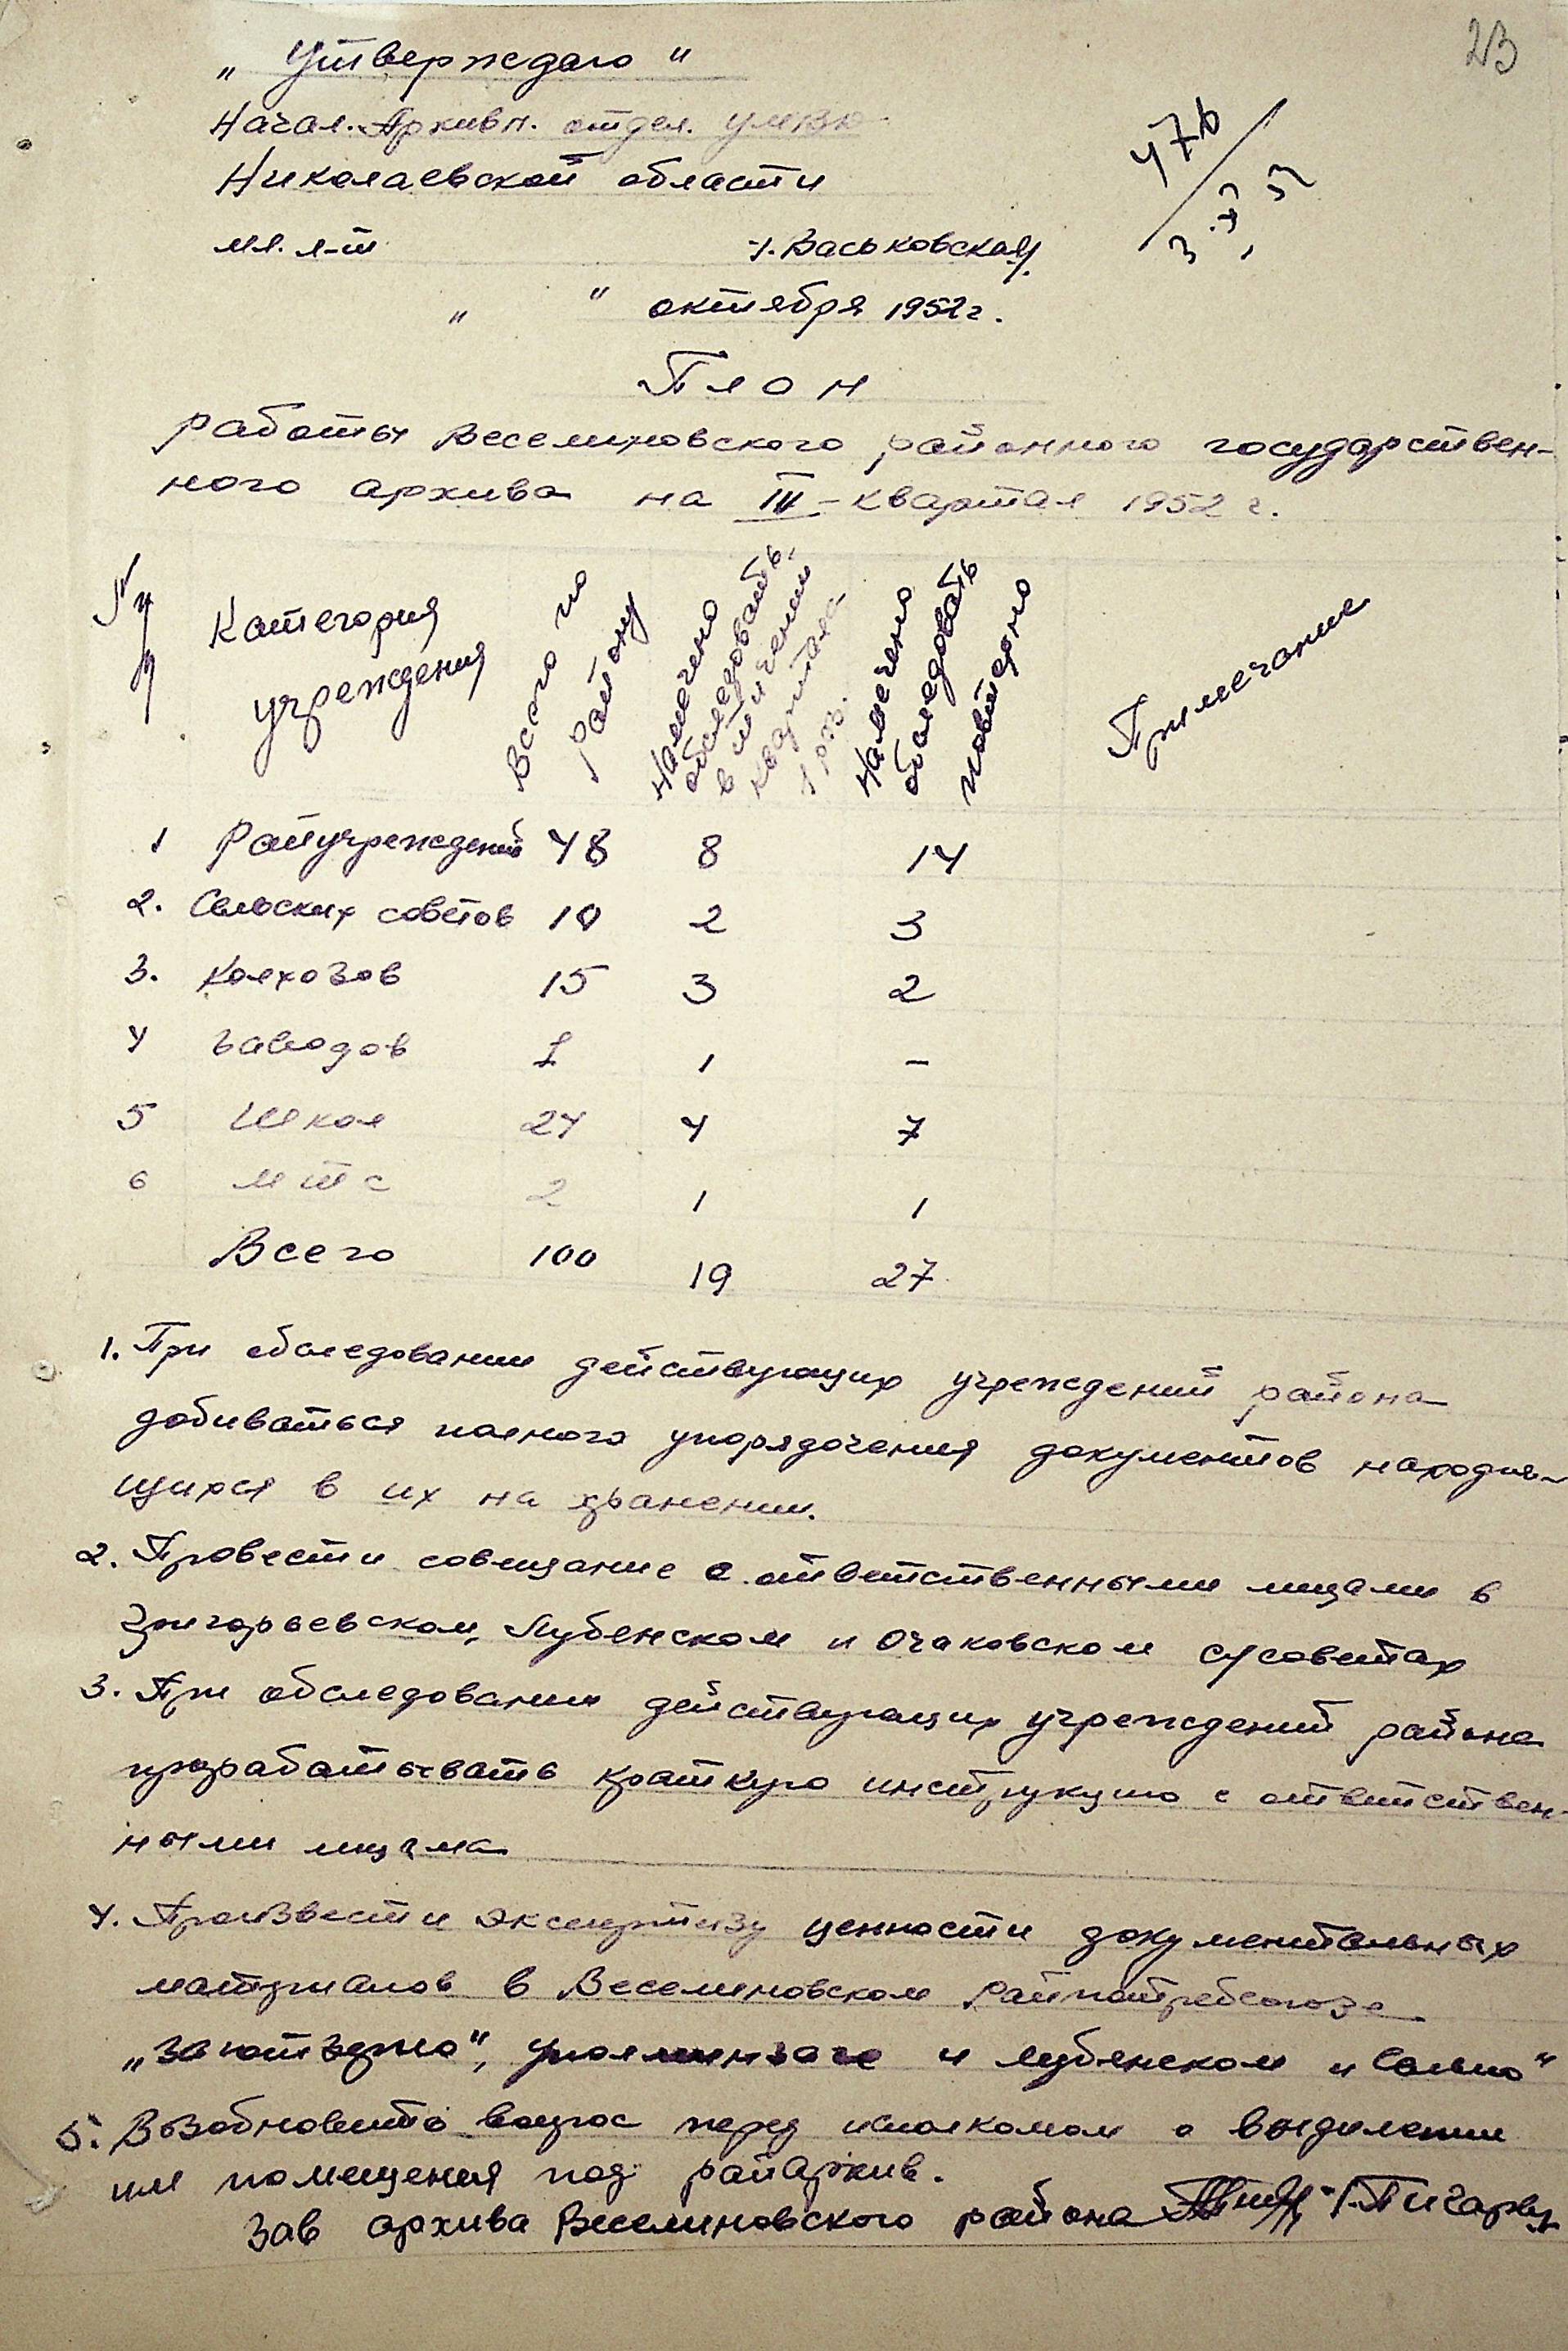 23
„ Утверждаю "
Начал. Архивн. отдел. УМВЮ
Николаевской области
мл. л-т /. Васьковская/.
47б
3.
„ " октября 1952 г.
План
работы Веселиновского районного государствен-
ного архива на IV - квартал 1952 г.
№ п/п Категория учреждения Всего по району Намечено обследовать в течении квартала 1 раз. Намечено обследовать повторно Примечание
1 Райучреждений 48 8 14
2. Сельских советов 10 2 3
3. Колхозов 15 3 2
4 Заводов 1 1 –
5 Школ 24 4 7
6 МТС 2 1 1
Всего 100 19 27
1. При обследовании действующих учреждений района
добиваться полного упорядочения документов находя-
щихся в их на хранении.
2. Провести совещание с ответственными лицами в
Григорьевском, Лубенском и Очаковском с/советах
3. При обследовании действующих учреждений района
прорабатывать краткую инструкцию с ответствен-
ными лицама
4. Произвести экспертизу ценности документальных
материалов в Веселиновском Райпотребсоюзе
„Заготзерно", и Лубянском и Сельпо"
5. Возобновить вопрос перед исполкомом о выделении
им помещения под райархив.
Зав архива Веселиновского района /. Пигарву